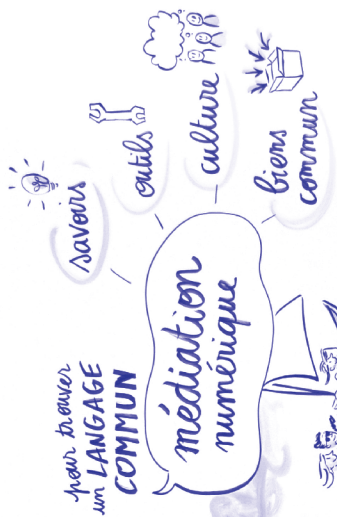 pour trouver
un LANGAGE
COMMUN
médiation
numérique
savoirs
outils
culture
biens
commun